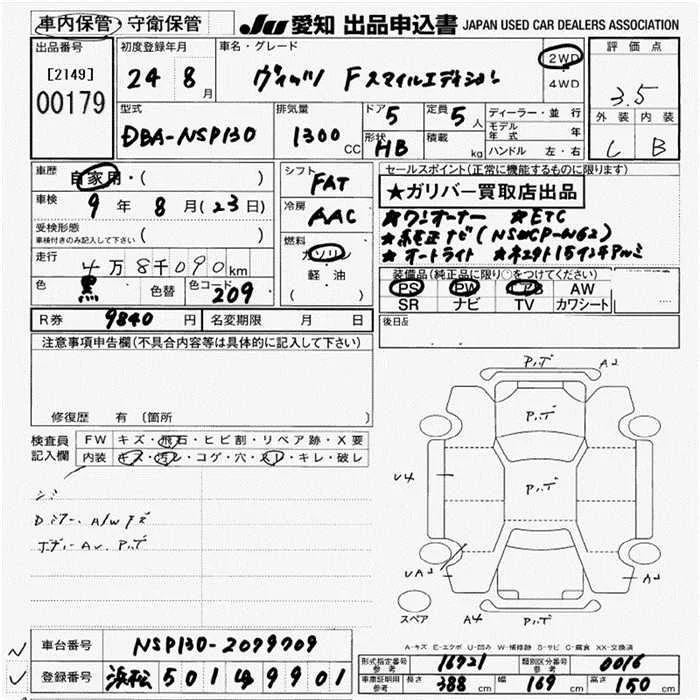 車内保管・守衛保管 JU 愛知 出品申込書 JAPAN USED CAR DEALERS ASSOCIATION
出品番号 初度登録年月 車名・グレード 評価点
[2149] 24 8月 ヴィッツ Fスマイルエディション 2WD・4WD 3.5
00179
型式 排気量 ドア 定員 ディーラー・並行 外装 内装
DBA-NSP130 1300CC 5 5人 モデル年式 年 C B
形状 HB 積載 kg ハンドル 左・右
車歴 自家用・( ) シフト FAT セールスポイント(正常に機能するものに限ります)
★ガリバー買取店出品
車検 9年8月(23日) 冷房 AAC ★ワンオーナー ★ETC
受検形態 ★純正ナビ(NSCP-W62)
車検付きのみ記入して下さい ( ) 燃料 ガソリン ★オートライト
走行 4万8千090km 軽・油 装備品(純正品に限り○をつけてください)
色 黒 色替 色コード 209 ( ) PS PW AB AW
SR ナビ TV カワシート
R券 9840円 名変期限 月 日 後日品
注意事項申告欄(不具合内容等は具体的に記入して下さい)
修復歴 有 〔箇所
検査員記入欄 FW キズ・飛石・ヒビ割・リペア跡・X要
内装 キズ・汚レ・コゲ・穴・スレ・キレ・破レ
シミ
Dミラー、A/Wキズ
ボディーAU、P.ボ
P.ボ A2
P.ボ
U4 P.ボ
UA2 A2
スペア A4 P.ボ
A-キズ E-エクボ U-凹み W-補修跡 S-サビ C-腐食 XX-交換済
車台番号 NSP130-2099709
登録番号 浜松 501 9901
形式指定番号 参考 16721 類別区分番号 参考 0016
車庫証明用 参考 長さ 388cm 幅 169cm 高さ 150cm